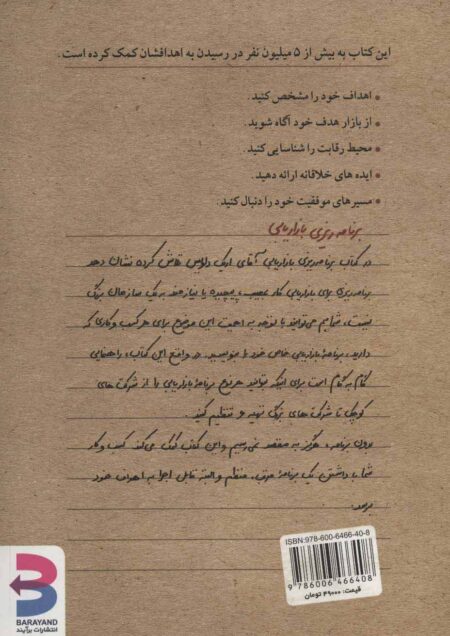 این کتاب به بیش از ۵ میلیون نفر در رسیدن به اهدافشان کمک کرده است.
• اهداف خود را مشخص کنید.
• از بازار هدف خود آگاه شوید.
• محیط رقابت را شناسایی کنید.
• ایده های خلاقانه ارائه دهید.
• مسیرهای موفقیت خود را دنبال کنید.
برنامه ریزی بازاریابی
در کتاب برنامه‌ریزی بازاریابی آقای اریک دلاوس تلاش کرده نشان دهد
برنامه‌ریزی برای بازاریابی کار عجیب، پیچیده یا نیازمند به یک سازمان بزرگ
نیست، شما هم می‌توانید با توجه به اهمیت این موضوع برای هر کسب و کاری که
دارید، برنامهٔ بازاریابی خاص خود را بنویسید. در واقع این کتاب، راهنمایی
گام به گام است برای اینکه بتوانید هر نوع برنامهٔ بازاریابی را از شرکت های
کوچک تا شرکت های بزرگ تهیه و تنظیم کنید.
بدون برنامه، هرگز به مقصد نمی‌رسیم و این کتاب کمک می‌کند کسب و کار
شما با داشتن یک برنامهٔ مرتب، منظم و البته قابل اجرا به اهداف خود
برسد.
ISBN: 978-600-6466-40-8
9 786006 466408
قیمت: ۴۹۰۰۰ تومان
BARAYAND
انتشارات برآیند